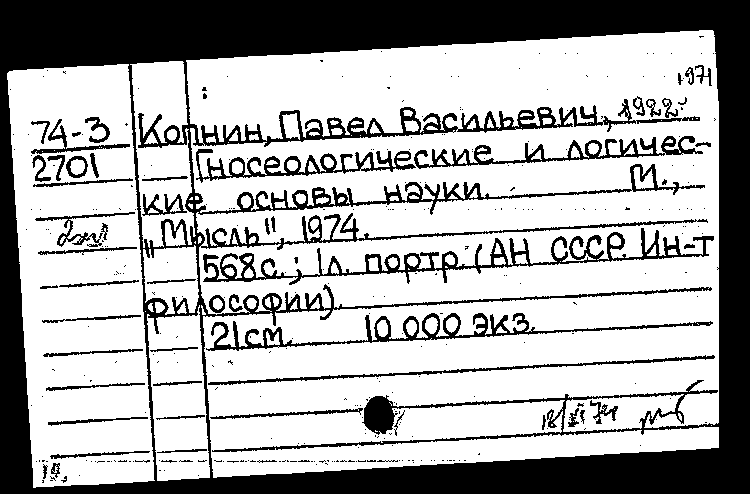 1971
74-3 Копнин, Павел Васильевич, 1922-
2701 Гносеологические и логичес-
кие основы науки. М.,
„Мысль", 1974.
568с.; 1л. портр. (АН СССР. Ин-т
философии).
21см. 10 000 экз.